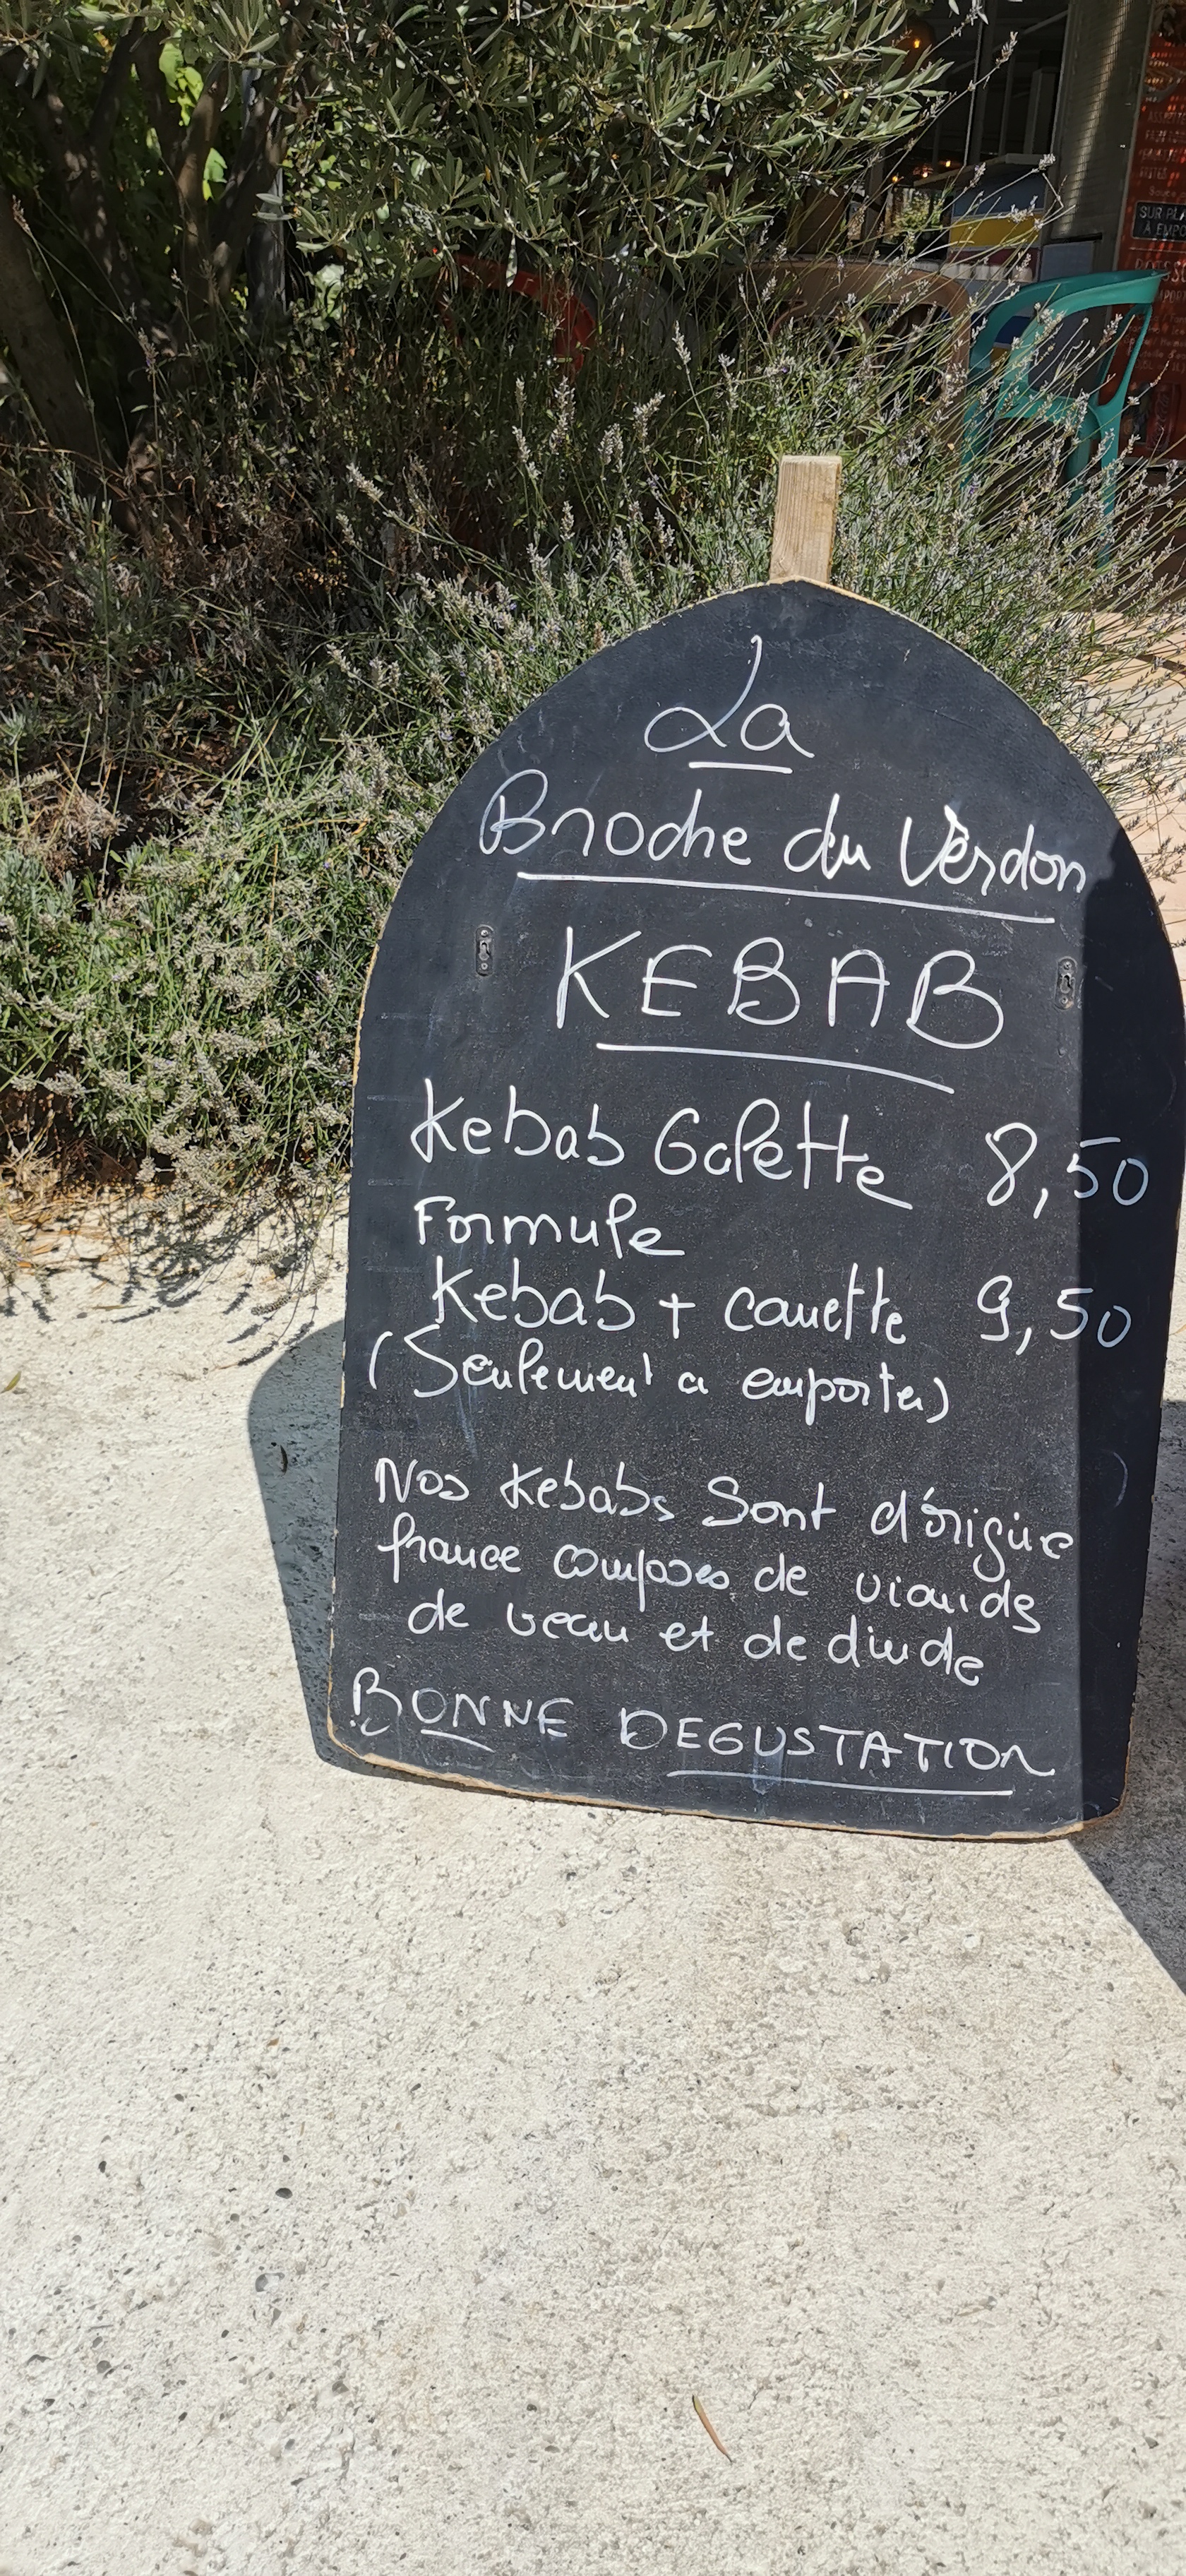 La
Broche du Verdon
KEBAB
Kebab Galette 8,50
Formule
Kebab + canette 9,50
(Seulement a emporter)
Nos Kebabs Sont d'origine
france composes de viandes
de veau et de dinde
BONNE DEGUSTATION
SUR PLA
A EMPO